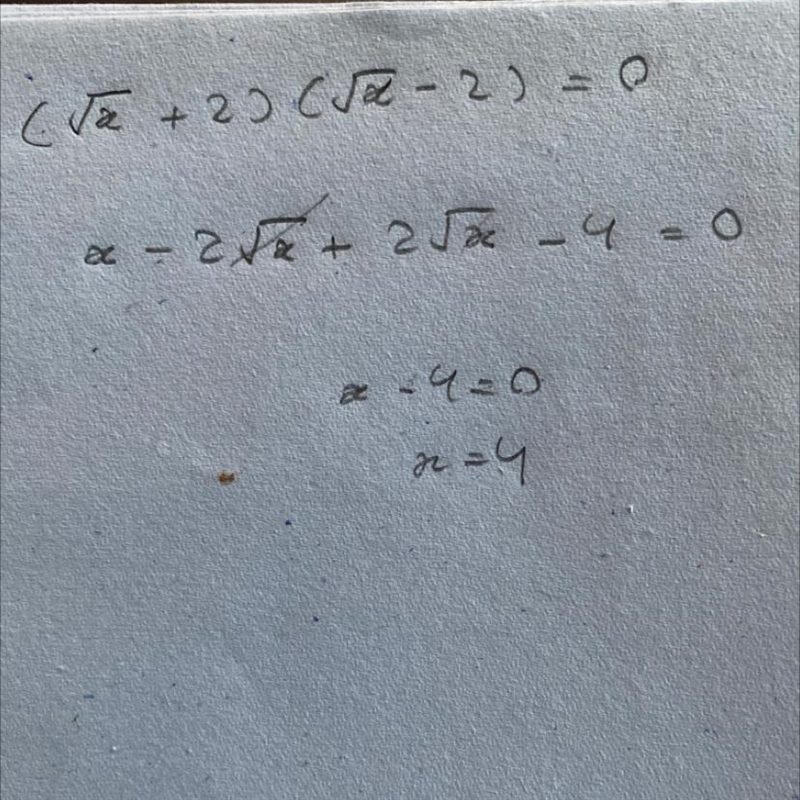 (√x + 2) (√x - 2) = 0
x - 2√x + 2√x - 4 = 0
x - 4 = 0
x = 4